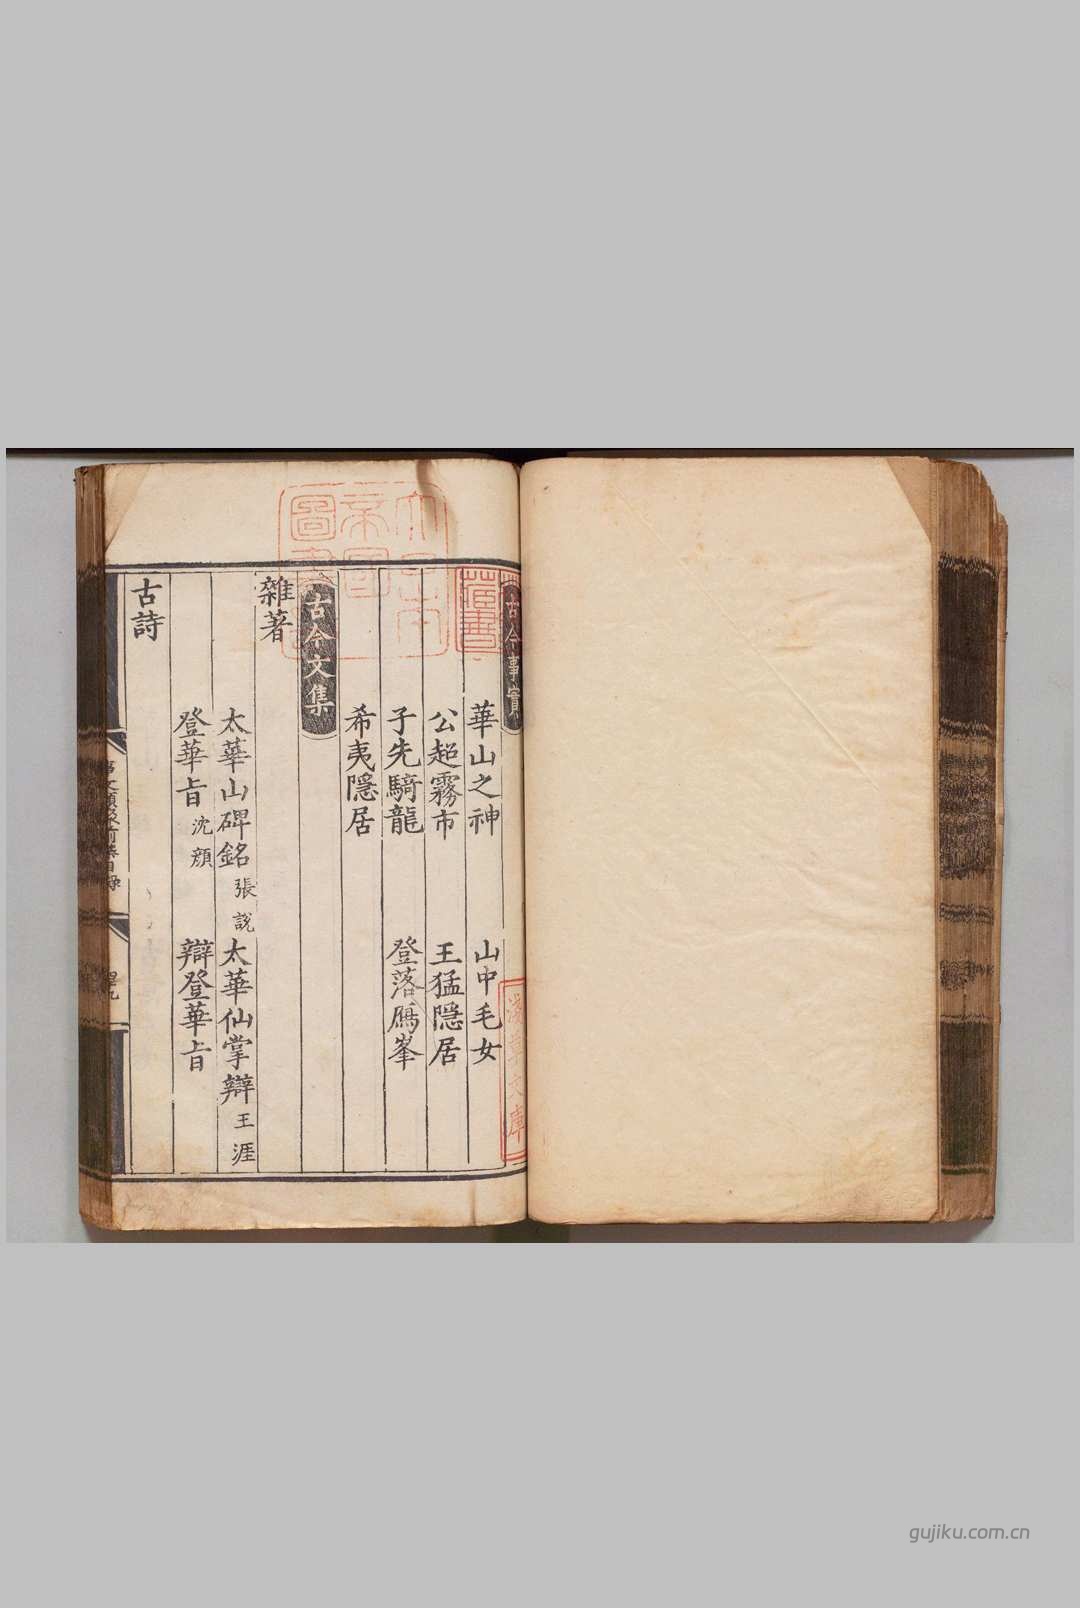 古今事實
華山之神 山中毛女
公超霧市 王猛隱居
子先騎龍 登落鴈峯
希夷隱居
古今文集
雜著
太華山碑銘 張說 太華仙掌辯 王涯
登華旨 沈顔 辯登華旨
古詩
藏書
圖書
帝國
文庫
gujiku.com.cn